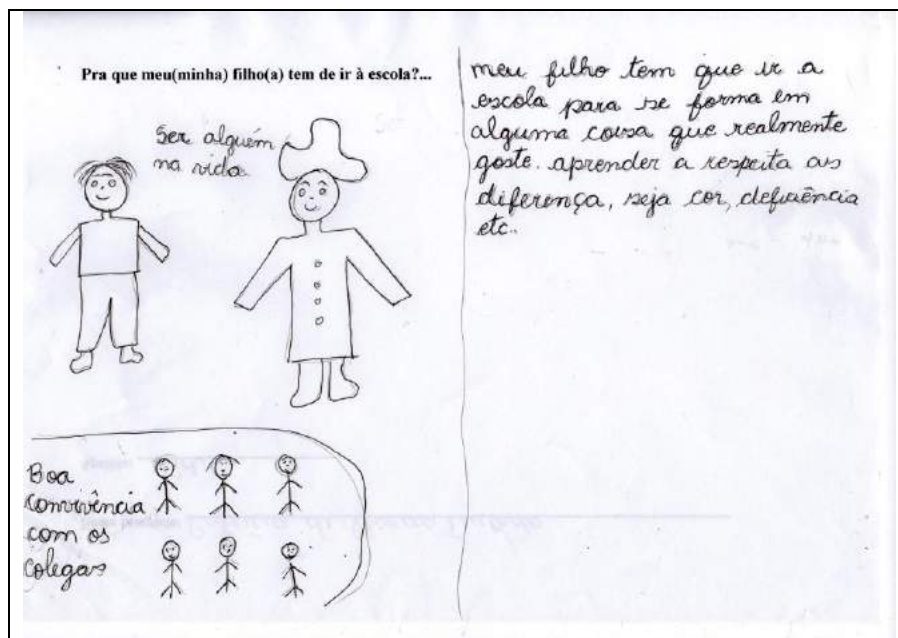 Pra que meu(minha) filho(a) tem de ir à escola?...
Ser alguém
na vida
Boa
convivência
com os
colegas
meu filho tem que ir a
escola para se forma em
alguma coisa que realmente
goste. aprender a respeita as
diferença, seja cor, deficiência
etc.